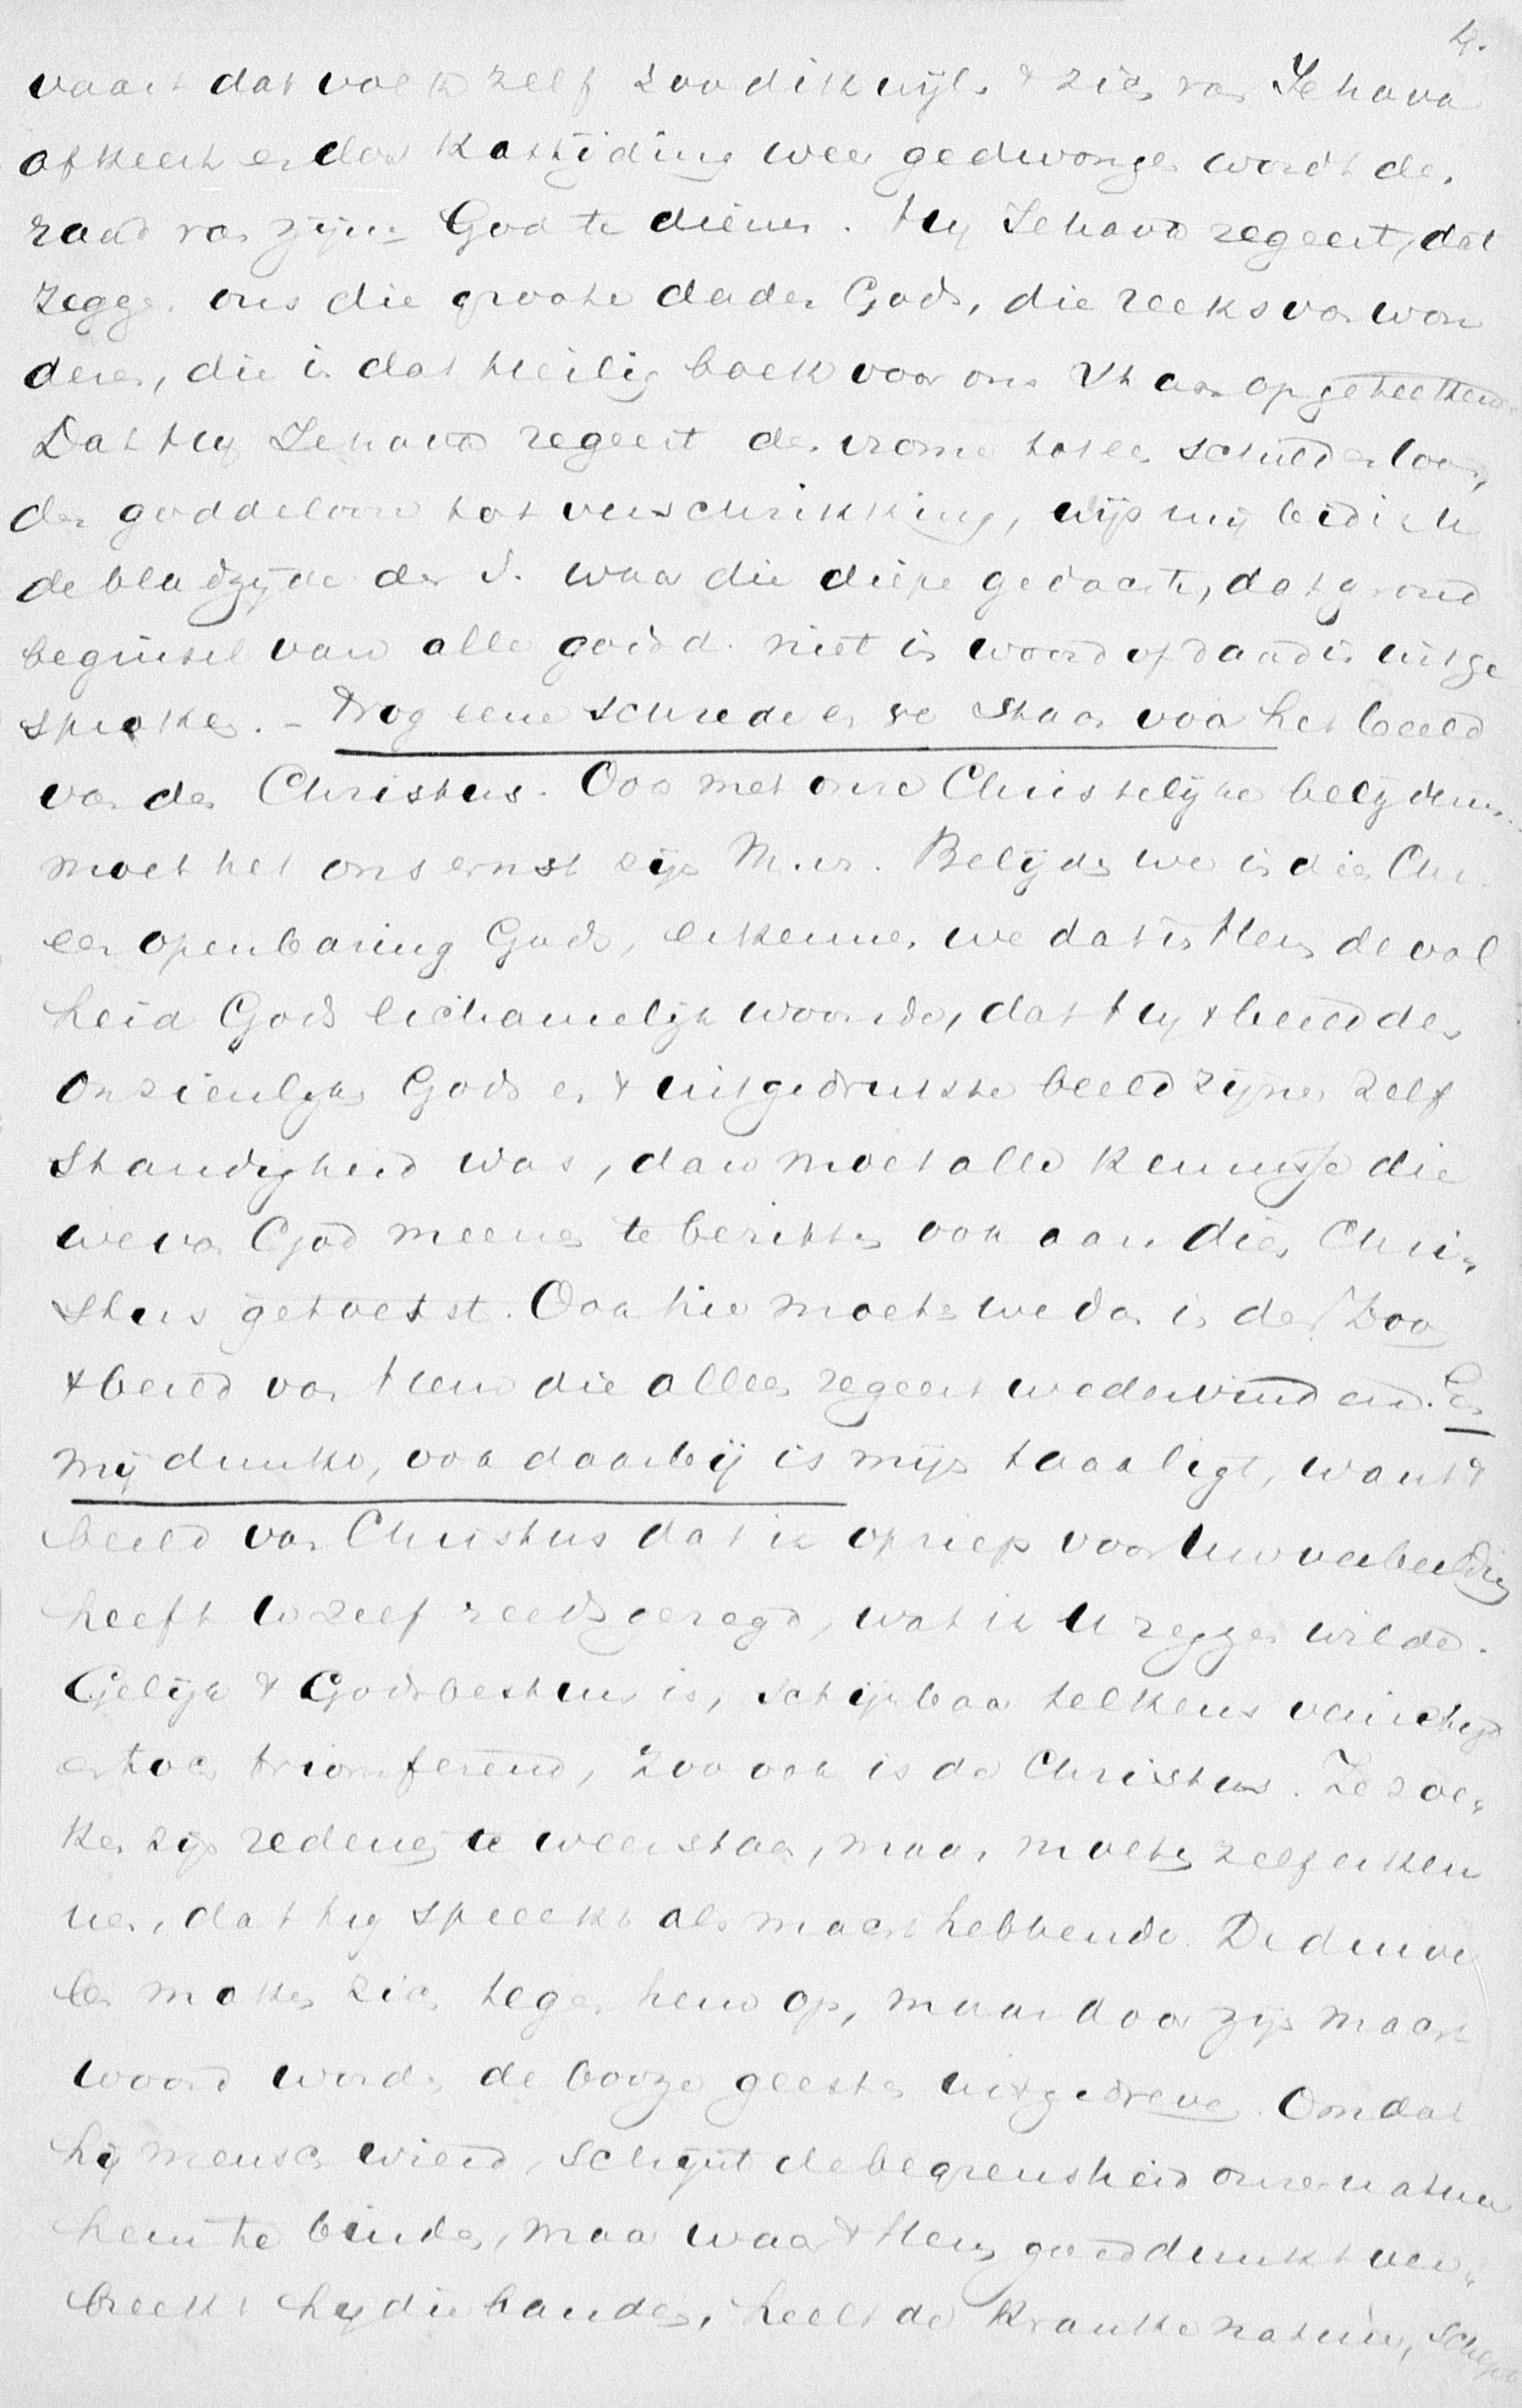 4.
vaart dat volk zelf zoo dikwijls & zich van Jehova
afkeert en door kastijding weer gedwongen wordt den
raad van zijn God te dienen. Hij Jehova regeert, dat
zeggen ons die groote daden Gods, die reeks van won
deren, die in dat heilig boek voor ons staan opgeteekend
Dat Hij Jehova regeert den vrome tot een schild en loon,
den goddeloozen tot verschrikking, wijs mij bid ik u
de bladzijde der S. waar die diepe gedachte, dat grond
beginsel van alle godsd. niet in woord of daad is uitge
sproken. – Nog eene schrede en we staan voor het beeld
van den Christus. Ook met onze Christelijke belijdenis
moet het ons ernst zijn M. vr. Belijden we in dien Chr.
een openbaring Gods, erkennen we dat in Hem de vol
heid Gods lichamelijk woonde, dat Hij & beeld des
onzienlijken Gods en & uitgedrukte beeld zijner zelf
standigheid was, dan moet alle kennisse die
we van God meenen te bezitten ook aan dien Chri-
stus getoetst. Ook hier moeten we dan in den Zoon
& beeld van Hem die alles regeert wedervinden. En
mij dunkt, ook daarbij is mijn taak ligt, want &
beeld van Christus dat ik opriep voor uw verbeelding
heeft u zelf reeds gezegd, wat ik U zeggen wilde.
Gelijk & Godsbestuur is, schijnbaar telkens vernietigd
en toch triomferend, zoo ook is de Christus. Ze zoe-
ken zijn redenen te weerstaan, maar moeten zelf erken
nen, dat hij spreekt als macht hebbende. De duive
len maken zich tegen hem op, maar door zijn macht
woord worden de booze geesten uitgedreven. Omdat
hij mensch wierd, schijnt de begrensheid onzer natuur
hem te binden, maar waar & Hem goeddunkt ver-
breekt hij die banden, heelt de kranke natuur, schept